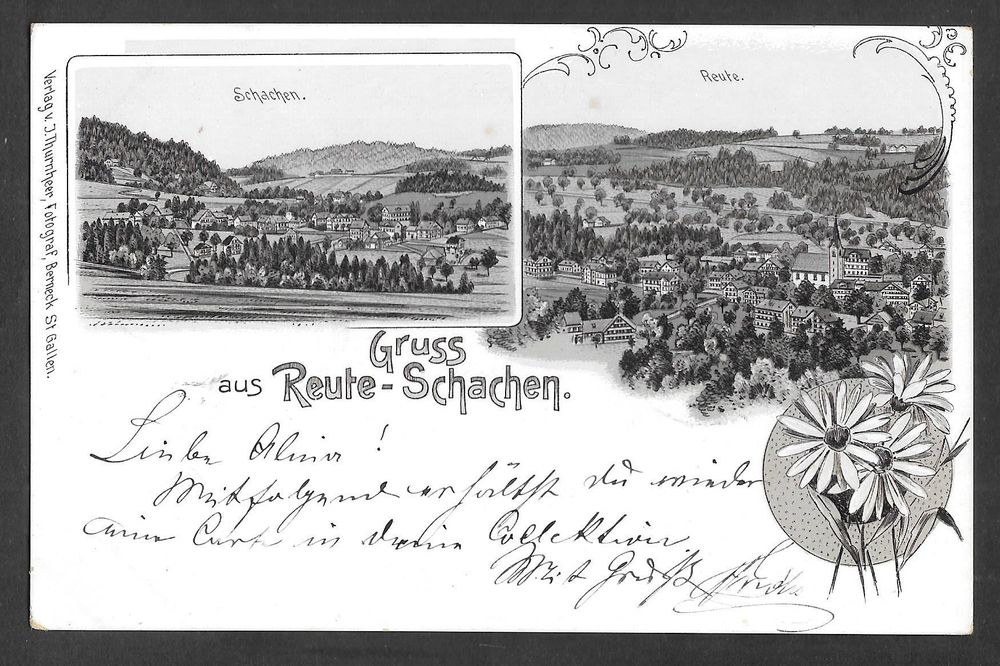 Schachen.
Reute.
Verlag v. J. Thurnheer, Fotograf, Berneck St Gallen.
Gruss
aus Reute-Schachen.
Liebe Alina!
Mitfolgend erhältst du wieder
eine Carte in deine Collektion
Mit Gruß